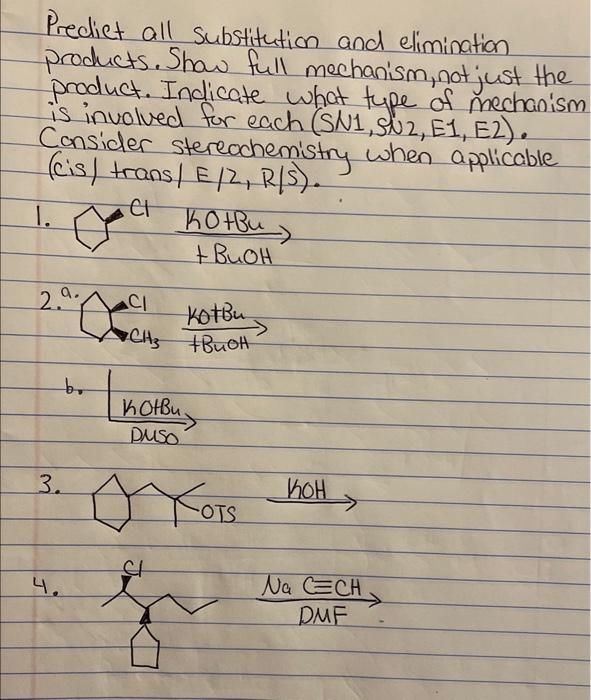 Predict all substitution and elimination
products. Show full mechanism, not just the
product. Indicate what type of mechanism
is involved for each (SN1, SN2, E1, E2).
Consider stereochemistry when applicable
(cis/ trans/ E/Z, R/S).
1. Cl KOtBu
tBuOH
2. a. Cl KOtBu
CH3 tBuOH
b. KOtBu
DMSO
3. OTS KOH
4. Cl Na C≡CH
DMF